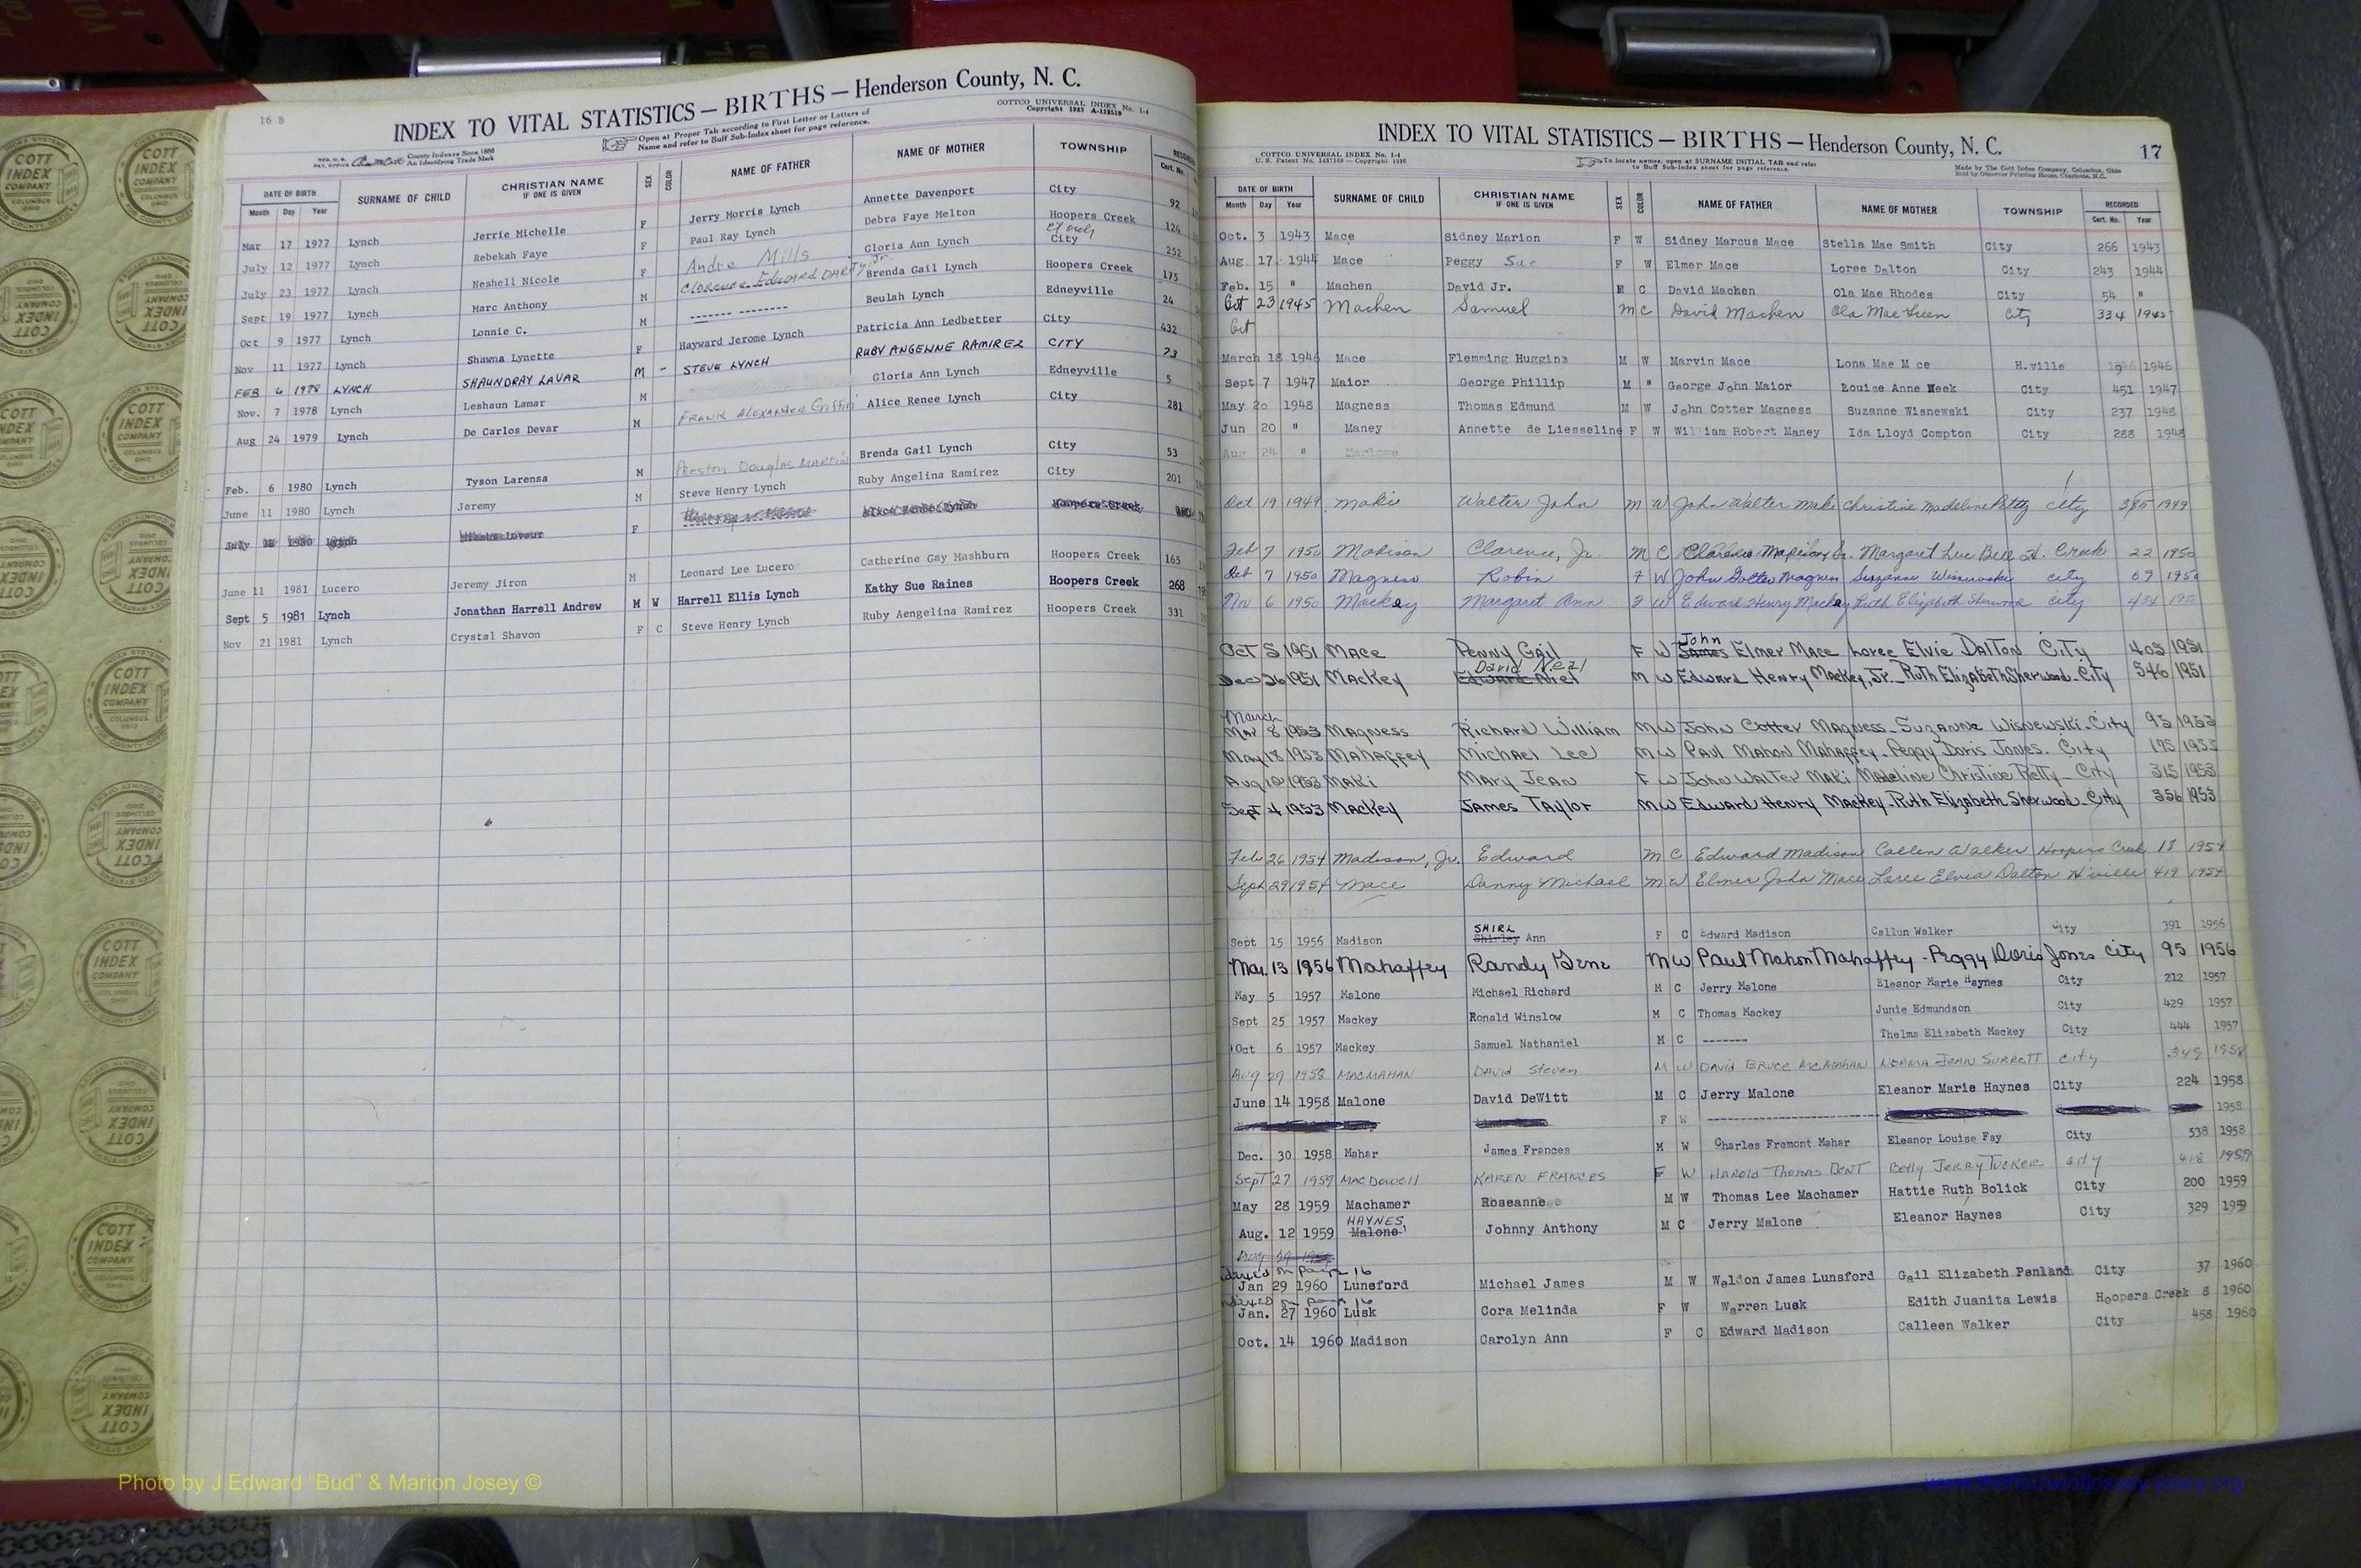 16 B
INDEX TO VITAL STATISTICS — BIRTHS — Henderson County, N. C.
COTTCO UNIVERSAL INDEX No. 1-4
Open at Proper Tab according to First Letter or Letters of
Name and refer to Buff Sub-Index sheet for page reference.
County Indexes Since 1888
An Identifying Trade Mark
DATE OF BIRTH SURNAME OF CHILD CHRISTIAN NAME IF ONE IS GIVEN SEX COLOR NAME OF FATHER NAME OF MOTHER TOWNSHIP RECORDED
Month Day Year Cert. No.
Mar 17 1977 Lynch Jerrie Michelle F Jerry Morris Lynch Annette Davenport City 92
July 12 1977 Lynch Rebekah Faye F Paul Ray Lynch Debra Faye Melton Hoopers Creek 124
July 23 1977 Lynch Neshell Nicole F Andre Mills Gloria Ann Lynch City 252
Sept 19 1977 Lynch Marc Anthony M Clarence Edward Darity Jr. Brenda Gail Lynch Hoopers Creek 175
Oct 9 1977 Lynch Lonnie C. M ------- -------- Beulah Lynch Edneyville 24
Nov 11 1977 Lynch Shawna Lynette F Hayward Jerome Lynch Patricia Ann Ledbetter City 432
FEB 6 1978 LYNCH SHAUNDRAY LAVAR M - STEVE LYNCH RUBY ANGENNE RAMIREZ CITY 73
Nov. 7 1978 Lynch Leshaun Lamar M Gloria Ann Lynch Edneyville 5
Aug 24 1979 Lynch De Carlos Devar M FRANK ALEXANDER Griffin Alice Renee Lynch City 281
Feb. 6 1980 Lynch Tyson Larensa M Preston Douglas MARTIN Brenda Gail Lynch City 53
June 11 1980 Lynch Jeremy M Steve Henry Lynch Ruby Angelina Ramirez City 201
July 1980 Lynch F Alice Renee Lynch Hoopers Creek
June 11 1981 Lucero Jeremy Jiron M Leonard Lee Lucero Catherine Gay Mashburn Hoopers Creek 165
Sept 5 1981 Lynch Jonathan Harrell Andrew M W Harrell Ellis Lynch Kathy Sue Raines Hoopers Creek 268
Nov 21 1981 Lynch Crystal Shavon F C Steve Henry Lynch Ruby Aengelina Ramirez Hoopers Creek 331
INDEX TO VITAL STATISTICS — BIRTHS — Henderson County, N. C. 17
COTTCO UNIVERSAL INDEX No. 1-4
To locate names, open at SURNAME INITIAL TAB and refer
to Buff Sub-Index sheet for page reference.
Made by The Cott Index Company, Columbus, Ohio
Sold by Observer Printing House, Charlotte, N.C.
DATE OF BIRTH SURNAME OF CHILD CHRISTIAN NAME IF ONE IS GIVEN SEX COLOR NAME OF FATHER NAME OF MOTHER TOWNSHIP RECORDED
Month Day Year Cert. No. Year
Oct. 3 1943 Mace Sidney Marion F W Sidney Marcus Mace Stella Mae Smith City 266 1943
Aug 17 1944 Mace Peggy Sue F W Elmer Mace Loree Dalton City 243 1944
Feb. 15 " Machen David Jr. M C David Machen Ola Mae Rhodes City 54 "
Oct 23 1945 Machen Samuel M C David Machen Ola Mae Green City 334 1945
Oct
March 18 1946 Mace Flemming Huggins M W Marvin Mace Lona Mae M ce H.ville 1946
Sept 7 1947 Maior George Phillip M " George John Maior Louise Anne Week City 451 1947
May 20 1948 Magness Thomas Edmund M W John Cotter Magness Suzanne Wisnewski City 237 1948
Jun 20 " Maney Annette de Liesseline F W William Robert Maney Ida Lloyd Compton City 288 1948
Aug 24 " Marlowe
Oct 19 1949 Maki Walter John M W John Walter Maki Christine Madeline Petty City 385 1949
Feb 7 1950 Madison Clarence, Jr. M C Clarence Madison Sr. Margaret Lue Bell H. Creek 22 1950
Feb 7 1950 Magness Robin F W John Cotter Magness Suzanne Wisnewski city 69 1950
Nov 6 1950 Mackey Margaret Ann F W Edward Henry Mackey Ruth Elizabeth Sherwood city 434 1950
Oct 5 1951 Mace Penny Gail F W John James Elmer Mace Loree Elvie Dalton City 403 1951
Dec 26 1951 Mackey David Neal Edward Niel M W Edward Henry Mackey, Jr. Ruth Elizabeth Sherwood City 546 1951
March
Mar 8 1953 Magness Richard William M W John Cotter Magness Suzanne Wisnewski City 93 1953
May 18 1953 Mahaffey Michael Lee M W Paul Mahon Mahaffey Peggy Doris Jones City 175 1953
Aug 10 1953 Maki Mary Jean F W John Walter Maki Madeline Christine Petty City 315 1953
Sept 4 1953 Mackey James Taylor M W Edward Henry Mackey Ruth Elizabeth Sherwood City 356 1953
Feb 26 1954 Madison, Jr. Edward M C Edward Madison Callen Walker Hoopers Creek 18 1954
Sept 29 1954 Mace Danny Michael M W Elmer John Mace Loree Elvia Dalton H'ville 419 1954
Sept 15 1956 Madison SHIRL Shirley Ann F C Edward Madison Callun Walker City 391 1956
Mar. 13 1956 Mahaffey Randy Gene M W Paul Mahon Mahaffey - Peggy Doris Jones City 95 1956
May 5 1957 Malone Michael Richard M C Jerry Malone Eleanor Marie Haynes City 212 1957
Sept 25 1957 Mackey Ronald Winslow M C Thomas Mackey Junie Edmundson City 429 1957
Oct 6 1957 Mackey Samuel Nathaniel M C ------- Thelma Elizabeth Mackey City 444 1957
Aug 29 1958 MACMAHAN DAVID Steven M W DAVID BRUCE McMAHAN NORMA JEAN SURRETT City 349 1958
June 14 1958 Malone David DeWitt M C Jerry Malone Eleanor Marie Haynes City 224 1958
F W ------- 1958
Dec. 30 1958 Mahar James Frances M W Charles Fremont Mahar Eleanor Louise Fay City 538 1958
Sept 27 1959 MACDOWELL KAREN FRANCES F W HAROLD Thomas DENT Betty JERRY TUCKER City 418 1959
May 28 1959 Machamer Roseanne M W Thomas Lee Machamer Hattie Ruth Bolick City 200 1959
Aug. 12 1959 HAYNES Malone Johnny Anthony M C Jerry Malone Eleanor Haynes City 329 1959
on page 16
Jan 29 1960 Lunsford Michael James M W Weldon James Lunsford Gail Elizabeth Penland City 37 1960
on page 16
Jan. 27 1960 Lusk Cora Melinda F W Warren Lusk Edith Juanita Lewis Hoopers Creek 8 1960
Oct. 14 1960 Madison Carolyn Ann F C Edward Madison Calleen Walker City 458 1960
COTT INDEX COMPANY COLUMBUS OHIO
Photo by J Edward “Bud” & Marion Josey ©
www.thehouseofjossey-josey.org